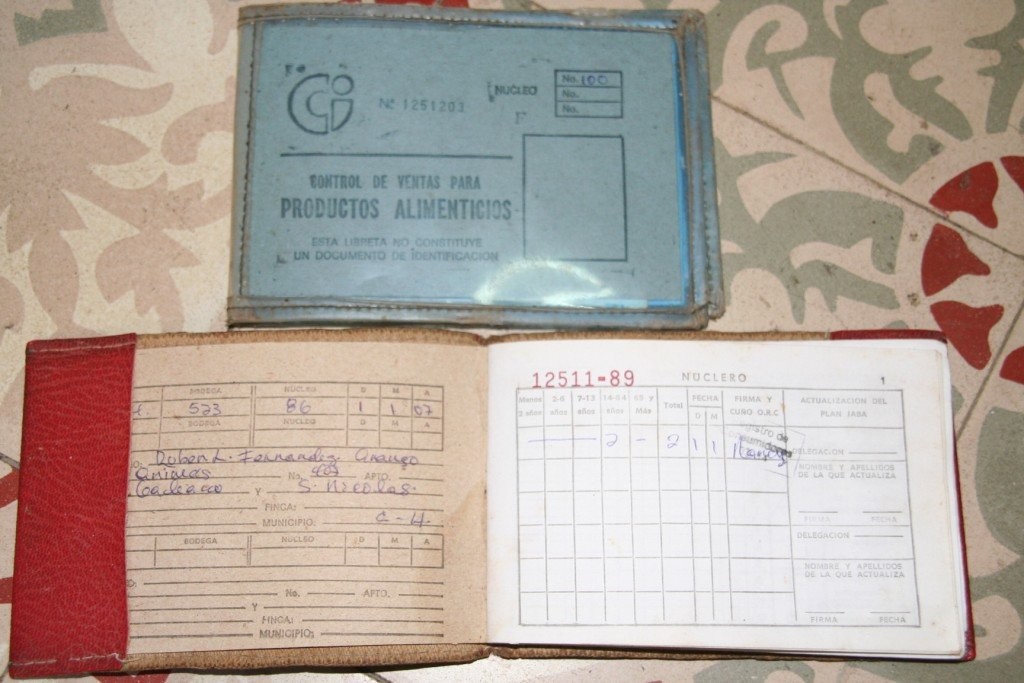 Nº 1251203
NUCLEO
No. 100
No.
No.
F
CONTROL DE VENTAS PARA
PRODUCTOS ALIMENTICIOS
ESTA LIBRETA NO CONSTITUYE
UN DOCUMENTO DE IDENTIFICACION
BODEGA NUCLEO D M A
523 86 1 1 07
BODEGA NUCLEO
Ruben L. Fernandez
Animas No. APTO.
Y S. Nicolas
FINCA:
MUNICIPIO: C-H
BODEGA NUCLEO D M A
No. APTO.
Y
FINCA:
MUNICIPIO:
12511-89 NUCLERO 1
Menos 2 años 2-6 años 7-13 años 14-64 años 65 y Más Total FECHA D M FIRMA Y CUÑO O.R.C ACTUALIZACION DEL PLAN JABA
2 - 2 1 1
DELEGACION
NOMBRE Y APELLIDOS
DE LA QUE ACTUALIZA
FIRMA FECHA
DELEGACION
NOMBRE Y APELLIDOS
DE LA QUE ACTUALIZA
FIRMA FECHA